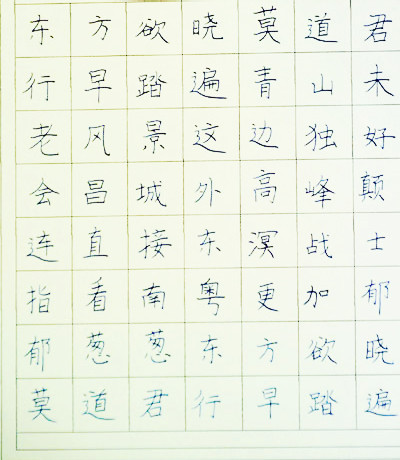 东方欲晓莫道君
行早踏遍青山未
老风景这边独好
会昌城外高峰颠
连直接东溟战士
指看南粤更加郁
郁葱葱东方欲晓
莫道君行早踏遍